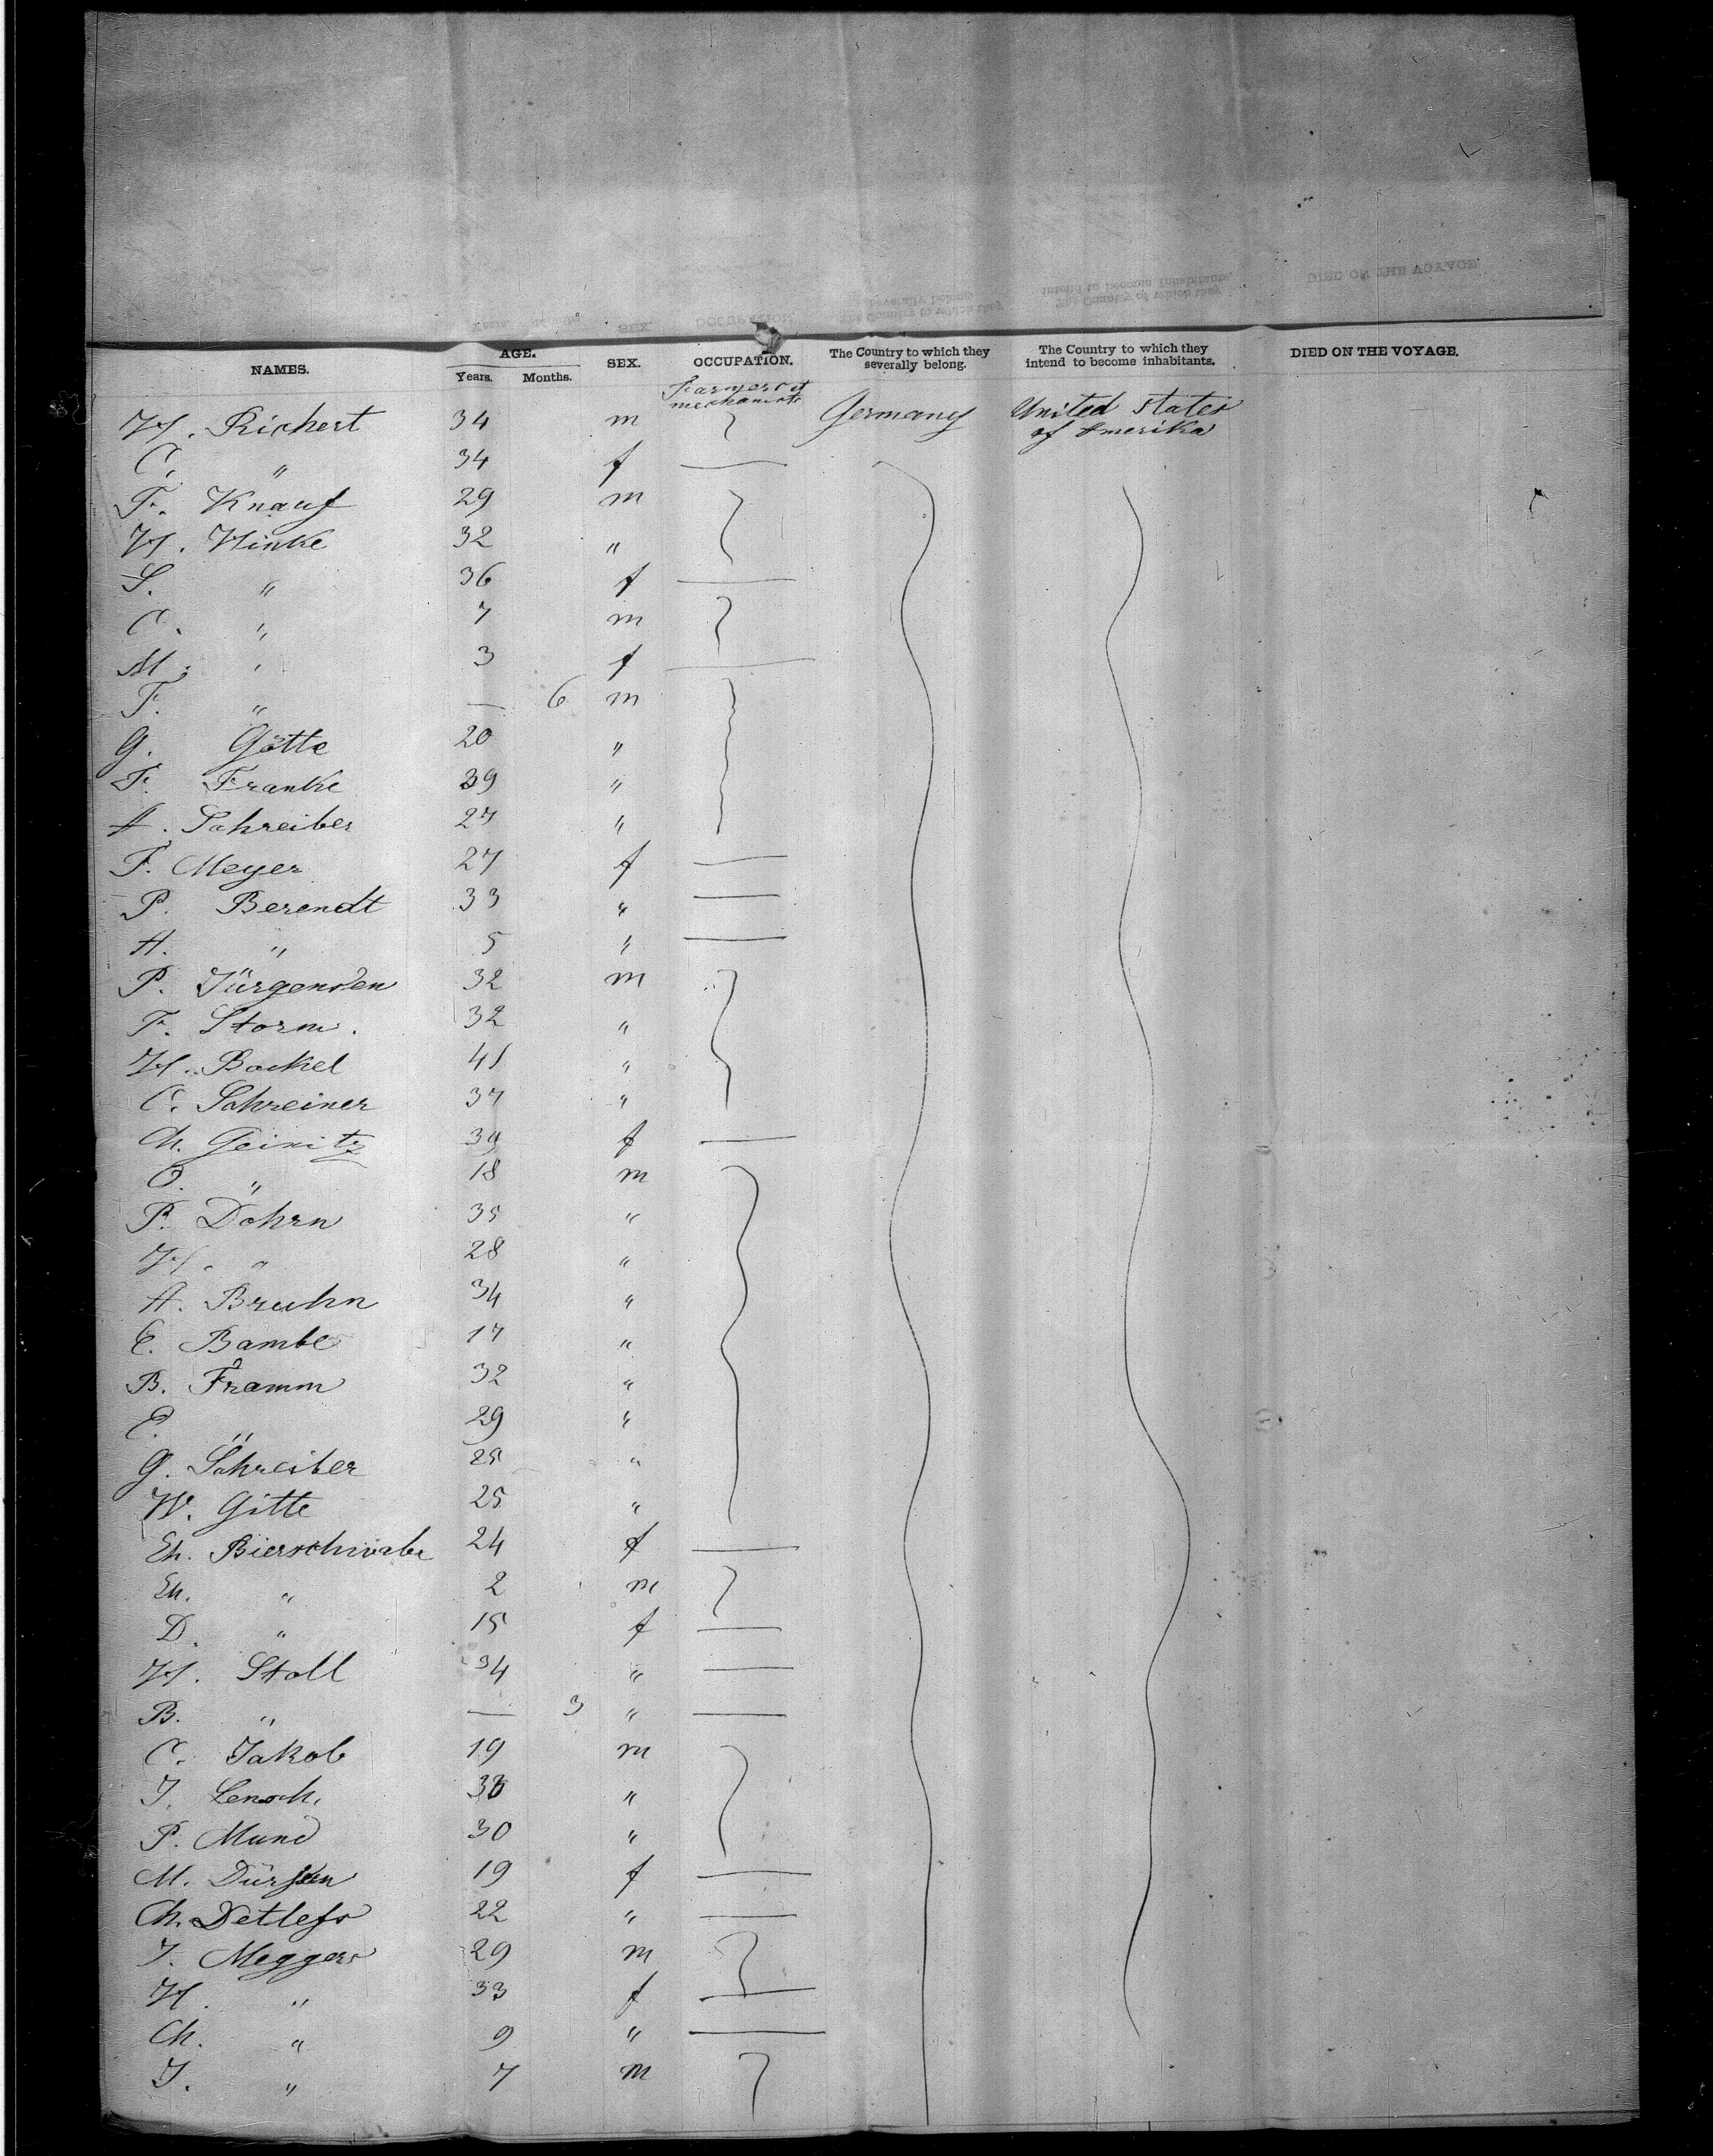 NAMES. AGE. SEX. OCCUPATION. The Country to which they severally belong. The Country to which they intend to become inhabitants. DIED ON THE VOYAGE.
Years. Months.
Farmers et mechanists
H. Richert 34 m Germany United States of Amerika
C. " 34 f —
F. Knauf 29 m
H. Hinke 32 "
S. " 36 f —
C. " 7 m
M. " 3 f —
F. " — 6 m
G. Götte 20 "
F. Franke 39 "
A. Schreiber 27 "
F. Meyer 27 f —
P. Berendt 33 " —
A. " 5 " —
P. Jürgensen 32 m
F. Storm. 32 "
H. Bockel 41 "
C. Schreiner 37 "
Ch. Geinitz 39 f —
O. " 18 m
P. Döhrn 35 "
H. " 28 "
A. Bruhn 34 "
E. Bambe 17 "
B. Framm 32 "
E. " 29 "
G. Schreiber 25 "
W. Gitte 25 "
Eh. Bierschwabe 24 f —
Eh. " 2 m
D. " 15 f —
H. Stoll 34 " —
B. " — 3 " —
C. Jakob 19 m
J. "
P. Mund 30 "
M. 19 f —
Ch. Detlefs 22 " —
J. Meggers 29 m
H. " 33 f —
Ch. " 9 " —
J. " 7 m